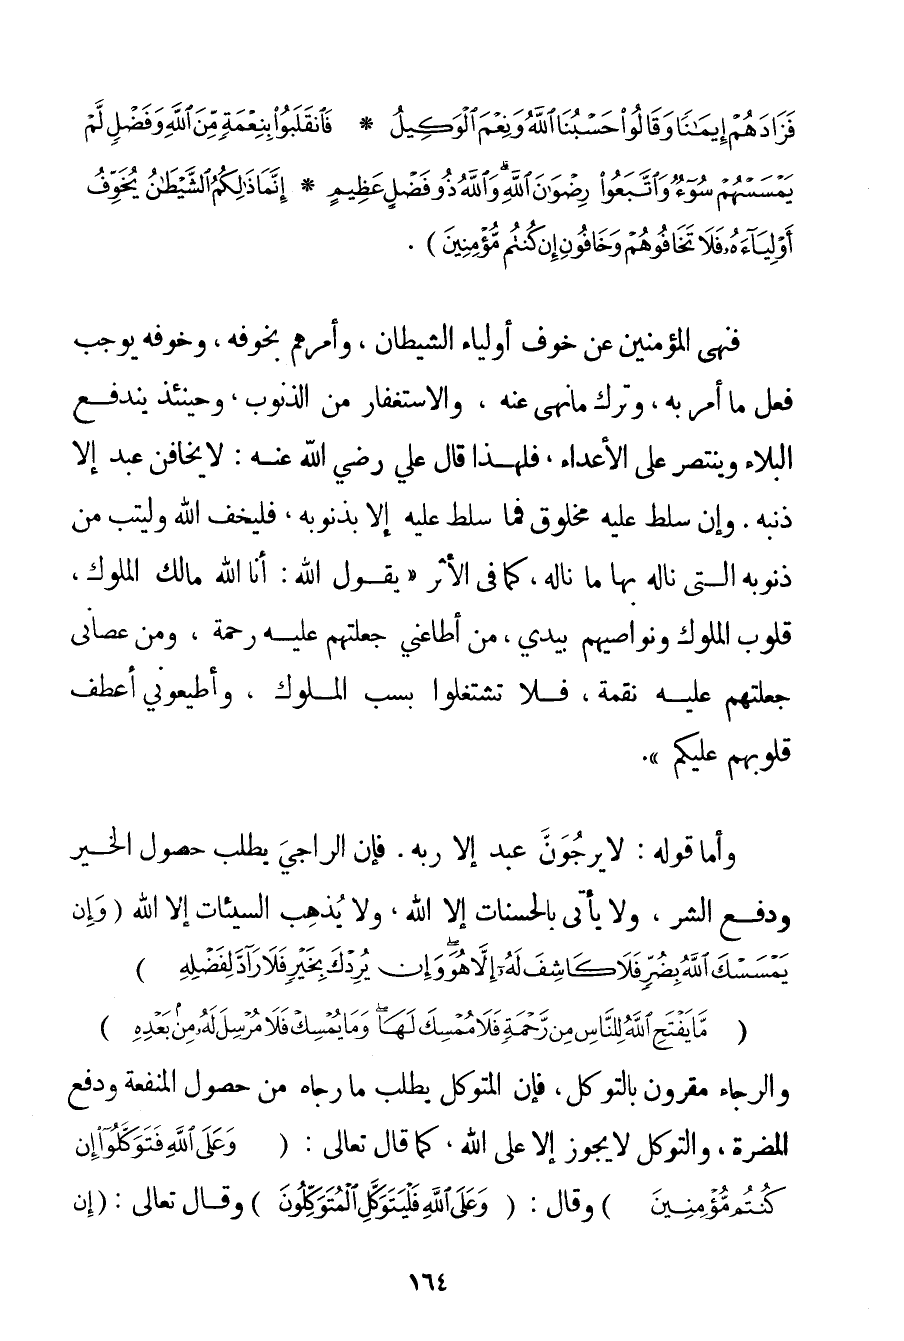 فَزَادَهُمْ إِيمَٰنًا وَقَالُوا۟ حَسْبُنَا ٱللَّهُ وَنِعْمَ ٱلْوَكِيلُ * فَٱنقَلَبُوا۟ بِنِعْمَةٍ مِّنَ ٱللَّهِ وَفَضْلٍ لَّمْ
يَمْسَسْهُمْ سُوٓءٌ وَٱتَّبَعُوا۟ رِضْوَٰنَ ٱللَّهِ ۗ وَٱللَّهُ ذُو فَضْلٍ عَظِيمٍ * إِنَّمَا ذَٰلِكُمُ ٱلشَّيْطَٰنُ يُخَوِّفُ
أَوْلِيَآءَهُۥ فَلَا تَخَافُوهُمْ وَخَافُونِ إِن كُنتُم مُّؤْمِنِينَ ) .
فنهى المؤمنين عن خوف أولياء الشيطان ، وأمرهم بخوفه ، وخوفه يوجب
فعل ما أمر به ، وترك ما نهى عنه ، والاستغفار من الذنوب ، وحينئذ يندفع
البلاء وينتصر على الأعداء ، فلهذا قال علي رضي الله عنه : لا يخافن عبد إلا
ذنبه . وإن سلط عليه مخلوق فما سلط عليه إلا بذنوبه ، فليخف الله وليتب من
ذنوبه التى ناله بها ما ناله ، كما فى الأثر « يقول الله : أنا الله مالك الملوك ،
قلوب الملوك ونواصيهم بيدي ، من أطاعني جعلتهم عليه رحمة ، ومن عصانى
جعلتهم عليه نقمة ، فلا تشتغلوا بسب الملوك ، وأطيعوني أعطف
قلوبهم عليكم » .
وأما قوله : لا يرجُوَنَّ عبد إلا ربه . فإن الراجيَ يطلب حصول الخير
ودفع الشر ، ولا يأتى بالحسنات إلا الله ، ولا يُذهِب السيئات إلا الله ( وَإِن
يَمْسَسْكَ ٱللَّهُ بِضُرٍّ فَلَا كَاشِفَ لَهُۥٓ إِلَّا هُوَ ۖ وَإِن يُرِدْكَ بِخَيْرٍ فَلَا رَآدَّ لِفَضْلِهِ )
( مَّا يَفْتَحِ ٱللَّهُ لِلنَّاسِ مِن رَّحْمَةٍ فَلَا مُمْسِكَ لَهَا ۖ وَمَا يُمْسِكْ فَلَا مُرْسِلَ لَهُۥ مِنۢ بَعْدِهِ )
والرجاء مقرون بالتوكل ، فإن المتوكل يطلب ما رجاه من حصول المنفعة ودفع
المضرة ، والتوكل لا يجوز إلا على الله ، كما قال تعالى : ( وَعَلَى ٱللَّهِ فَتَوَكَّلُوٓا۟ إِن
كُنتُم مُّؤْمِنِينَ ) وقال : ( وَعَلَى ٱللَّهِ فَلْيَتَوَكَّلِ ٱلْمُتَوَكِّلُونَ ) وقال تعالى : ( إِن
١٦٤